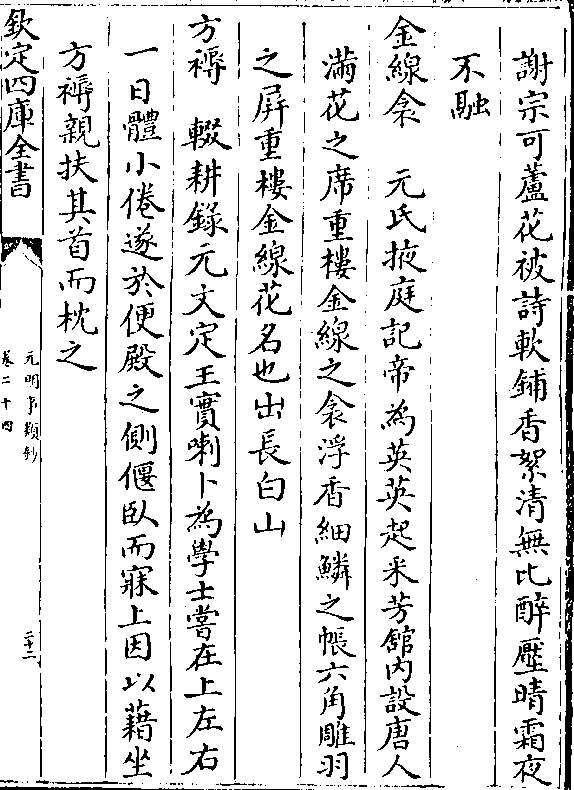 謝宗可蘆花被詩軟鋪香絮清無比醉壓晴霜夜
不融
金線衾　元氏掖庭記帝為英英起采芳館内設唐人
滿花之席重樓金線之衾浮香細鱗之帳六角雕羽
之屏重樓金線花名也出長白山
方褥　輟耕錄元文定王實喇卜為學士嘗在上左右
一日體小倦遂於便殿之側偃臥而寐上因以藉坐
方褥親扶其首而枕之
欽定四庫全書
元明事類鈔
卷二十四
二十二